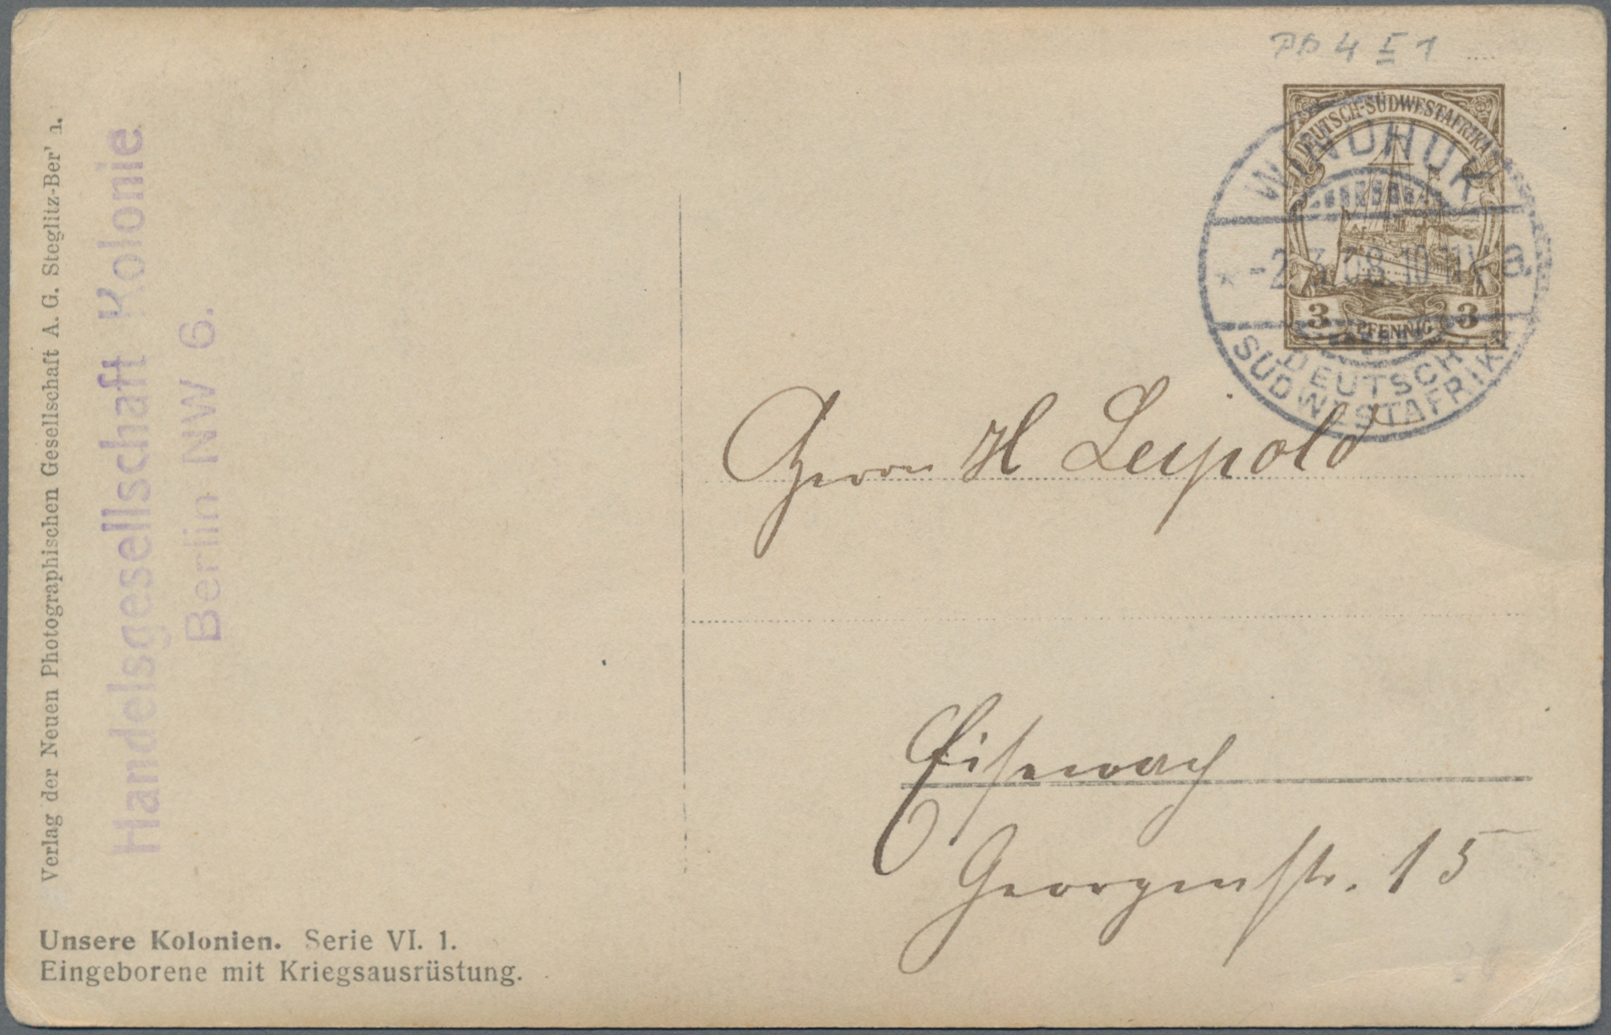 PP 4 I 1
DEUTSCH-SÜDWESTAFRIKA
3 PFENNIG 3
WINDHUK
-2.3.08.10-11V. a.
DEUTSCH-
SÜDWESTAFRIKA
Herrn H Leipold
Eisenach
Georgenstr. 15
Verlag der Neuen Photographischen Gesellschaft A. G. Steglitz-Ber' n.
Handelsgesellschaft Kolonie
Berlin NW 6.
Unsere Kolonien. Serie VI. 1.
Eingeborene mit Kriegsausrüstung.